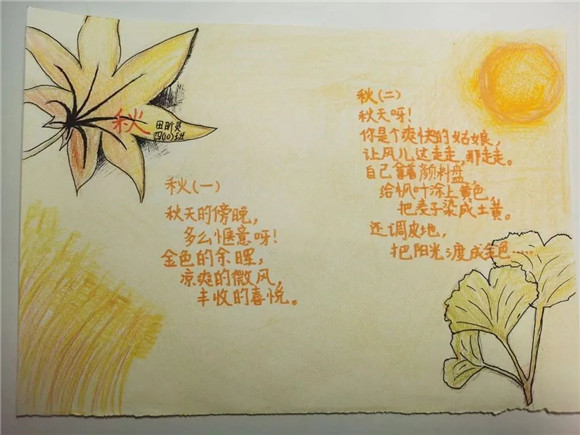 秋
四(10)班
秋(一)
秋天的傍晚，
多么惬意呀!
金色的余晖，
凉爽的微风，
丰收的喜悦。
秋(二)
秋天呀!
你是个爽快的姑娘，
让风儿这走走，那走走。
自己拿着颜料盘
给枫叶涂上黄色，
把麦子染成土黄。
还调皮地，
把阳光渡成金色……